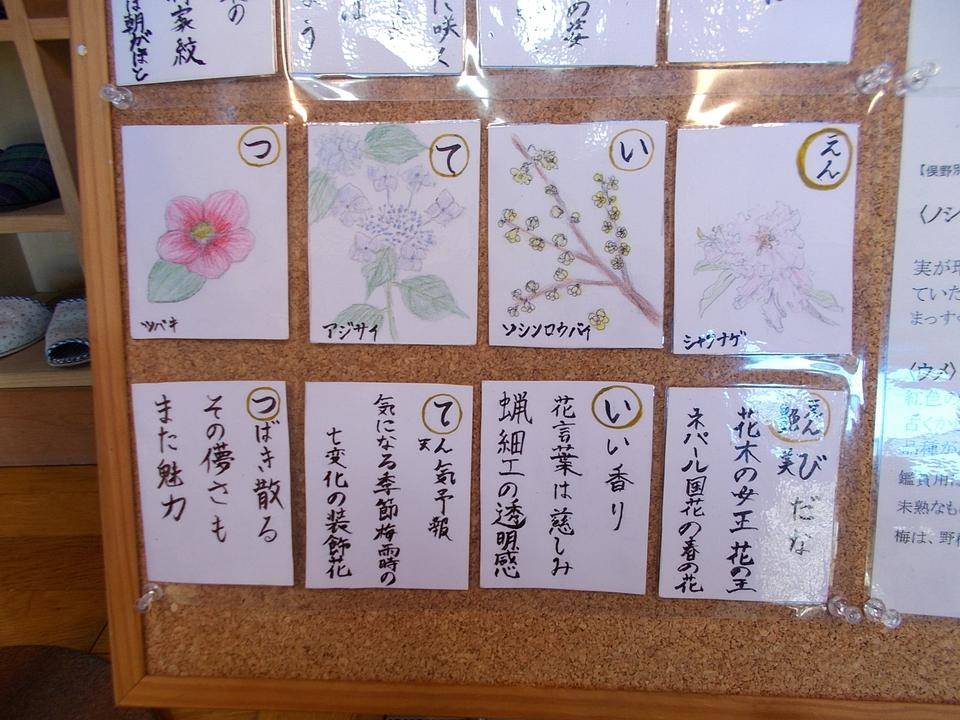 家紋
は朝がほと
に咲く
の姿
えん
シャクナゲ
い
ソシンロウバイ
て
アジサイ
つ
ツバキ
えんびだな
艶美
花木の女王 花の王
ネパール国花の春の花
いい香り
花言葉は慈しみ
蝋細工の透明感
てん気予報
天
気になる季節梅雨時の
七変化の装飾花
つばき散る
その儚さも
また魅力
〈ノシ
実が
ていた
まっす
〈ウメ〉
紅色の
古くか
鑑賞用
未熟なも
梅は、野